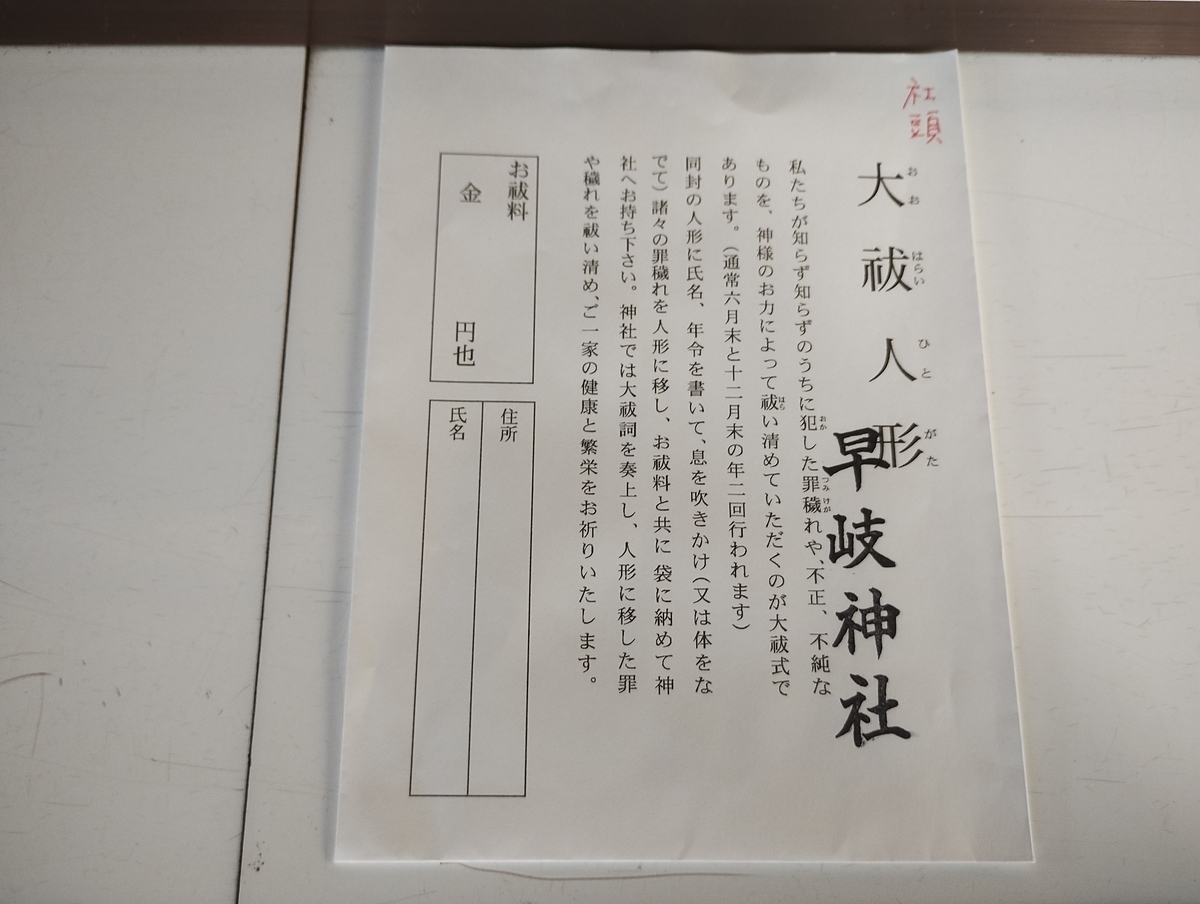 社頭
大祓人形
おお はらい ひと がた
早岐神社
私たちが知らず知らずのうちに犯した罪穢れや、不正、不純な
おか つみ けが
ものを、神様のお力によって祓い清めていただくのが大祓式で
はら
あります。（通常六月末と十二月末の年二回行われます）
同封の人形に氏名、年令を書いて、息を吹きかけ（又は体をな
でて）諸々の罪穢れを人形に移し、お祓料と共に袋に納めて神
社へお持ち下さい。神社では大祓詞を奏上し、人形に移した罪
や穢れを祓い清め、ご一家の健康と繁栄をお祈りいたします。
お祓料
金 円也
住所
氏名